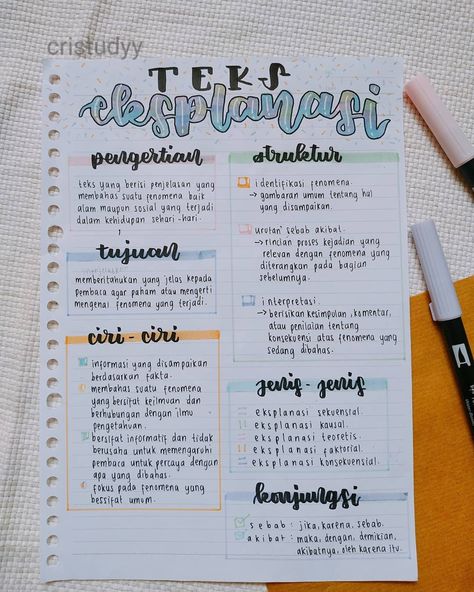 cristudyy
TEKS
eksplanasi
pengertian
teks yang berisi penjelasan yang
membahas suatu fenomena baik
alam maupun sosial yang terjadi
dalam kehidupan sehari-hari.
tujuan
memberitahukan yang jelas kepada
pembaca agar paham atau mengerti
mengenai fenomena yang terjadi.
ciri-ciri
informasi yang disampaikan
berdasarkan fakta.
membahas suatu fenomena
yang bersifat keilmuan dan
berhubungan dengan ilmu
pengetahuan.
bersifat informatif dan tidak
berusaha untuk memengaruhi
pembaca untuk percaya dengan
apa yang dibahas.
fokus pada fenomena yang
bersifat umum.
struktur
identifikasi fenomena.
→ gambaran umum tentang hal
yang disampaikan.
urutan sebab akibat.
→ rincian proses kejadian yang
relevan dengan fenomena yang
diterangkan pada bagian
sebelumnya.
interpretasi.
→ berisikan kesimpulan, komentar,
atau penilaian tentang
konsekuensi atas fenomena yang
sedang dibahas.
jenis-jenis
eksplanasi sekuensial.
eksplanasi kausal.
eksplanasi teoretis.
eksplanasi faktorial.
eksplanasi konsekuensial.
konjungsi
sebab : jika, karena, sebab.
akibat : maka, dengan, demikian,
akibatnya, oleh karena itu.